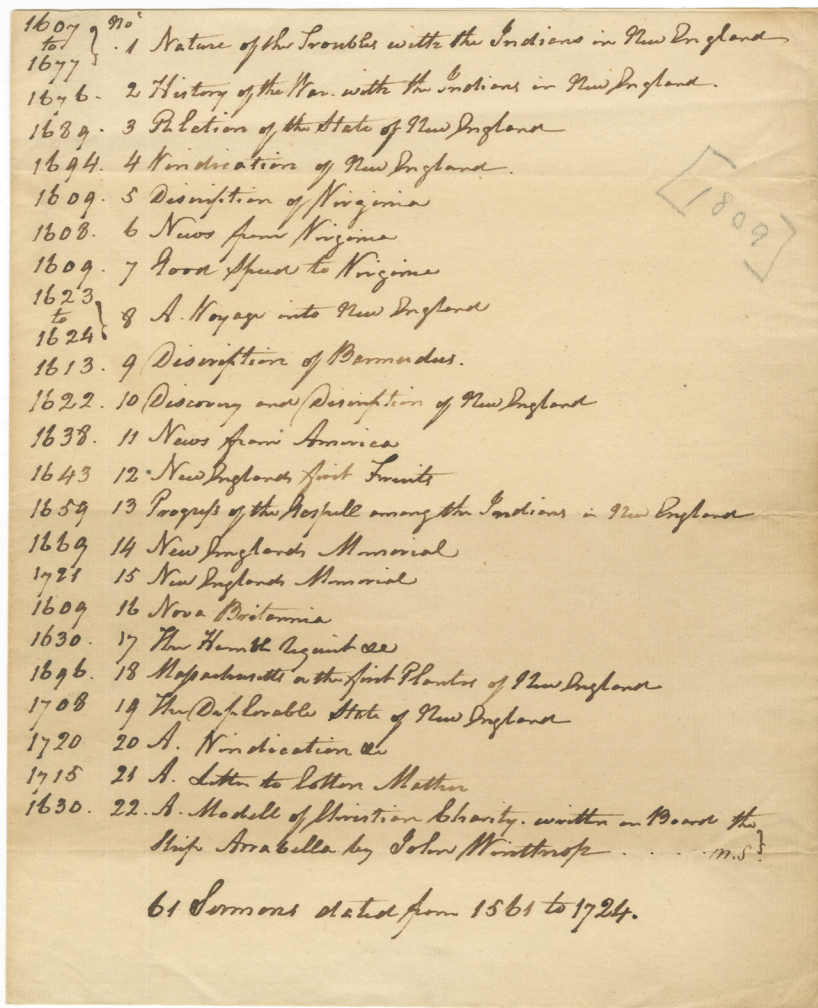 1607 to 1677 } No 1 Nature of the Troubles with the Indians in New England
1676. 2 History of the War with the Indians in New England.
1689. 3 Relation of the State of New England
1694. 4 Vindication of New England.
[1809]
1609. 5 Discription of Virginia
1608. 6 News from Virginia
1609. 7 Good Speed to Virginia
1623 to 1624 } 8 A. Voyage into New England
1613. 9 Discription of Barmudas.
1622. 10 Discovery and Discription of New England
1638. 11 News from America
1643 12 New Englands first Fruits
1659 13 Progress of the Gospell among the Indians in New England
1669 14 New Englands Memorial
1721 15 New Englands Memorial
1609 16 Nova Britannia
1630. 17 The Humble Request &c
1696. 18 Massachusetts or the first Planters of New England
1708 19 The Deplorable State of New England
1720 20 A. Vindication &c
1715 21 A. Letter to Cotton Mather
1630. 22. A. Modell of Christian Charity. written on Board the
Ship Arrabella by John Winthrop . . . . . m.S }
61 Sermons dated from 1561 to 1724.